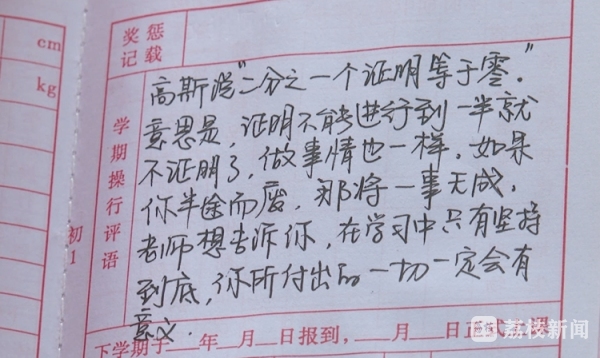 cm
kg
奖惩
记载
学期操行评语
初1
高斯说“二分之一个证明等于零。”
意思是,证明不能进行到一半就
不证明了,做事情也一样,如果
你半途而废,那将一事无成,
老师想告诉你,在学习中只有坚持
到底,你所付出的一切一定会有
意义.
下学期于__年__月__日报到,__月__日正式
荔枝新闻